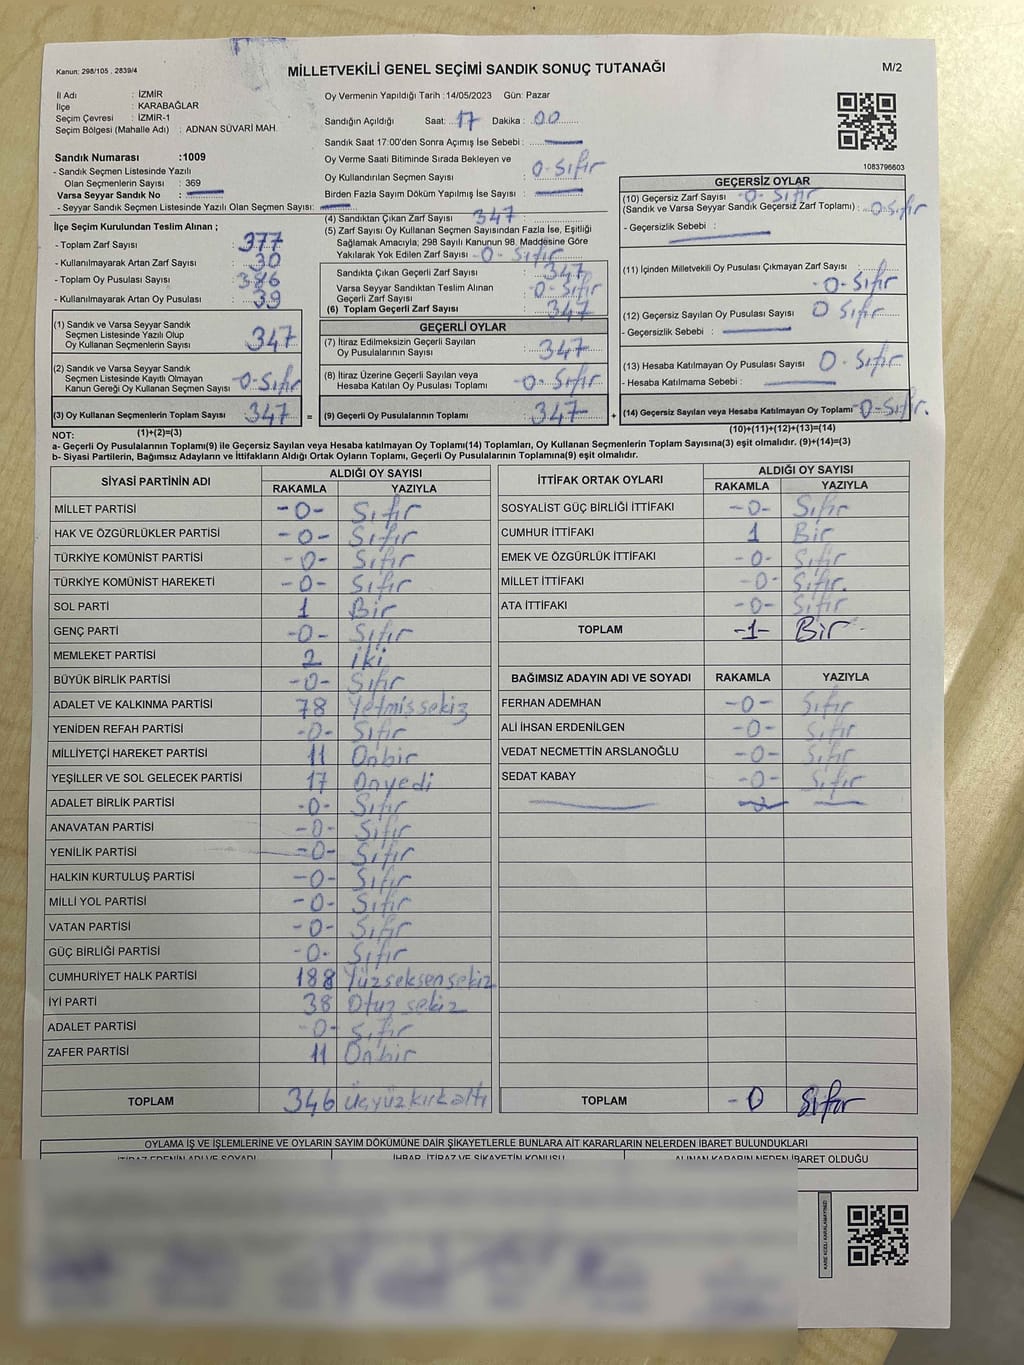 Kanun: 298/105 , 2839/4
MİLLETVEKİLİ GENEL SEÇİMİ SANDIK SONUÇ TUTANAĞI
M/2
İl Adı : İZMİR
İlçe : KARABAĞLAR
Seçim Çevresi : İZMİR-1
Seçim Bölgesi (Mahalle Adı) : ADNAN SÜVARİ MAH.
Sandık Numarası :1009
- Sandık Seçmen Listesinde Yazılı
Olan Seçmenlerin Sayısı : 369
Varsa Seyyar Sandık No :
- Seyyar Sandık Seçmen Listesinde Yazılı Olan Seçmen Sayısı:
İlçe Seçim Kurulundan Teslim Alınan ;
- Toplam Zarf Sayısı : 377
- Kullanılmayarak Artan Zarf Sayısı : 30
- Toplam Oy Pusulası Sayısı : 386
- Kullanılmayarak Artan Oy Pusulası : 39
(1) Sandık ve Varsa Seyyar Sandık
Seçmen Listesinde Yazılı Olup
Oy Kullanan Seçmenlerin Sayısı 347
(2) Sandık ve Varsa Seyyar Sandık
Seçmen Listesinde Kayıtlı Olmayan
Kanun Gereği Oy Kullanan Seçmen Sayısı -0-Sıfır
(3) Oy Kullanan Seçmenlerin Toplam Sayısı 347 =
(1)+(2)=(3)
Oy Vermenin Yapıldığı Tarih :14/05/2023 Gün: Pazar
Sandığın Açıldığı Saat: 17 Dakika : 00
Sandık Saat 17:00'den Sonra Açımış İse Sebebi :
Oy Verme Saati Bitiminde Sırada Bekleyen ve
Oy Kullandırılan Seçmen Sayısı : 0-Sıfır
Birden Fazla Sayım Döküm Yapılmış İse Sayısı :
(4) Sandıktan Çıkan Zarf Sayısı 347
(5) Zarf Sayısı Oy Kullanan Seçmen Sayısından Fazla İse, Eşitliği
Sağlamak Amacıyla; 298 Sayılı Kanunun 98. Maddesine Göre
Yakılarak Yok Edilen Zarf Sayısı -0-Sıfır
Sandıkta Çıkan Geçerli Zarf Sayısı : 347
Varsa Seyyar Sandıktan Teslim Alınan
Geçerli Zarf Sayısı : -0-Sıfır
(6) Toplam Geçerli Zarf Sayısı : 347
GEÇERLİ OYLAR
(7) İtiraz Edilmeksizin Geçerli Sayılan
Oy Pusulalarının Sayısı : 347
(8) İtiraz Üzerine Geçerli Sayılan veya
Hesaba Katılan Oy Pusulası Toplamı -0-Sıfır
(9) Geçerli Oy Pusulalarının Toplamı : 347 +
1083796603
GEÇERSİZ OYLAR
(10) Geçersiz Zarf Sayısı -0- Sıfır
(Sandık ve Varsa Seyyar Sandık Geçersiz Zarf Toplamı) : 0 Sıfır
- Geçersizlik Sebebi :
(11) İçinden Milletvekili Oy Pusulası Çıkmayan Zarf Sayısı : -0-Sıfır
(12) Geçersiz Sayılan Oy Pusulası Sayısı : 0 Sıfır
- Geçersizlik Sebebi :
(13) Hesaba Katılmayan Oy Pusulası Sayısı : 0-Sıfır
- Hesaba Katılmama Sebebi :
(14) Geçersiz Sayılan veya Hesaba Katılmayan Oy Toplamı -0-Sıfır.
(10)+(11)+(12)+(13)=(14)
NOT:
a- Geçerli Oy Pusulalarının Toplamı(9) ile Geçersiz Sayılan veya Hesaba katılmayan Oy Toplamı(14) Toplamları, Oy Kullanan Seçmenlerin Toplam Sayısına(3) eşit olmalıdır. (9)+(14)=(3)
b- Siyasi Partilerin, Bağımsız Adayların ve İttifakların Aldığı Ortak Oyların Toplamı, Geçerli Oy Pusulalarının Toplamına(9) eşit olmalıdır.
SİYASİ PARTİNİN ADI ALDIĞI OY SAYISI
RAKAMLA YAZIYLA
MİLLET PARTİSİ -0- Sıfır
HAK VE ÖZGÜRLÜKLER PARTİSİ -0- Sıfır
TÜRKİYE KOMÜNİST PARTİSİ -0- Sıfır
TÜRKİYE KOMÜNİST HAREKETİ -0- Sıfır
SOL PARTİ 1 Bir
GENÇ PARTİ -0- Sıfır
MEMLEKET PARTİSİ 2 iki
BÜYÜK BİRLİK PARTİSİ -0- Sıfır
ADALET VE KALKINMA PARTİSİ 78 Yetmişsekiz
YENİDEN REFAH PARTİSİ -0- Sıfır
MİLLİYETÇİ HAREKET PARTİSİ 11 Onbir
YEŞİLLER VE SOL GELECEK PARTİSİ 17 Onyedi
ADALET BİRLİK PARTİSİ -0- Sıfır
ANAVATAN PARTİSİ -0- Sıfır
YENİLİK PARTİSİ -0- Sıfır
HALKIN KURTULUŞ PARTİSİ -0- Sıfır
MİLLİ YOL PARTİSİ -0- Sıfır
VATAN PARTİSİ -0- Sıfır
GÜÇ BİRLİĞİ PARTİSİ -0- Sıfır
CUMHURİYET HALK PARTİSİ 188 Yüzseksensekiz
İYİ PARTİ 38 Otuz sekiz
ADALET PARTİSİ -0- Sıfır
ZAFER PARTİSİ 11 Onbir
TOPLAM 346 üçyüzkırkaltı
İTTİFAK ORTAK OYLARI ALDIĞI OY SAYISI
RAKAMLA YAZIYLA
SOSYALİST GÜÇ BİRLİĞİ İTTİFAKI -0- Sıfır
CUMHUR İTTİFAKI 1 Bir
EMEK VE ÖZGÜRLÜK İTTİFAKI -0- Sıfır
MİLLET İTTİFAKI -0- Sıfır.
ATA İTTİFAKI -0- Sıfır
TOPLAM -1- Bir
BAĞIMSIZ ADAYIN ADI VE SOYADI RAKAMLA YAZIYLA
FERHAN ADEMHAN -0- Sıfır
ALİ İHSAN ERDENİLGEN -0- Sıfır
VEDAT NECMETTİN ARSLANOĞLU -0- Sıfır
SEDAT KABAY -0- Sıfır
TOPLAM -0 Sıfır
OYLAMA İŞ VE İŞLEMLERİNE VE OYLARIN SAYIM DÖKÜMÜNE DAİR ŞİKAYETLERLE BUNLARA AİT KARARLARIN NELERDEN İBARET BULUNDUKLARI
İTİRAZ EDENİN ADI VE SOYADI İHBAR, İTİRAZ VE ŞİKAYETİN KONUSU ALINAN KARARIN NEDEN İBARET OLDUĞU